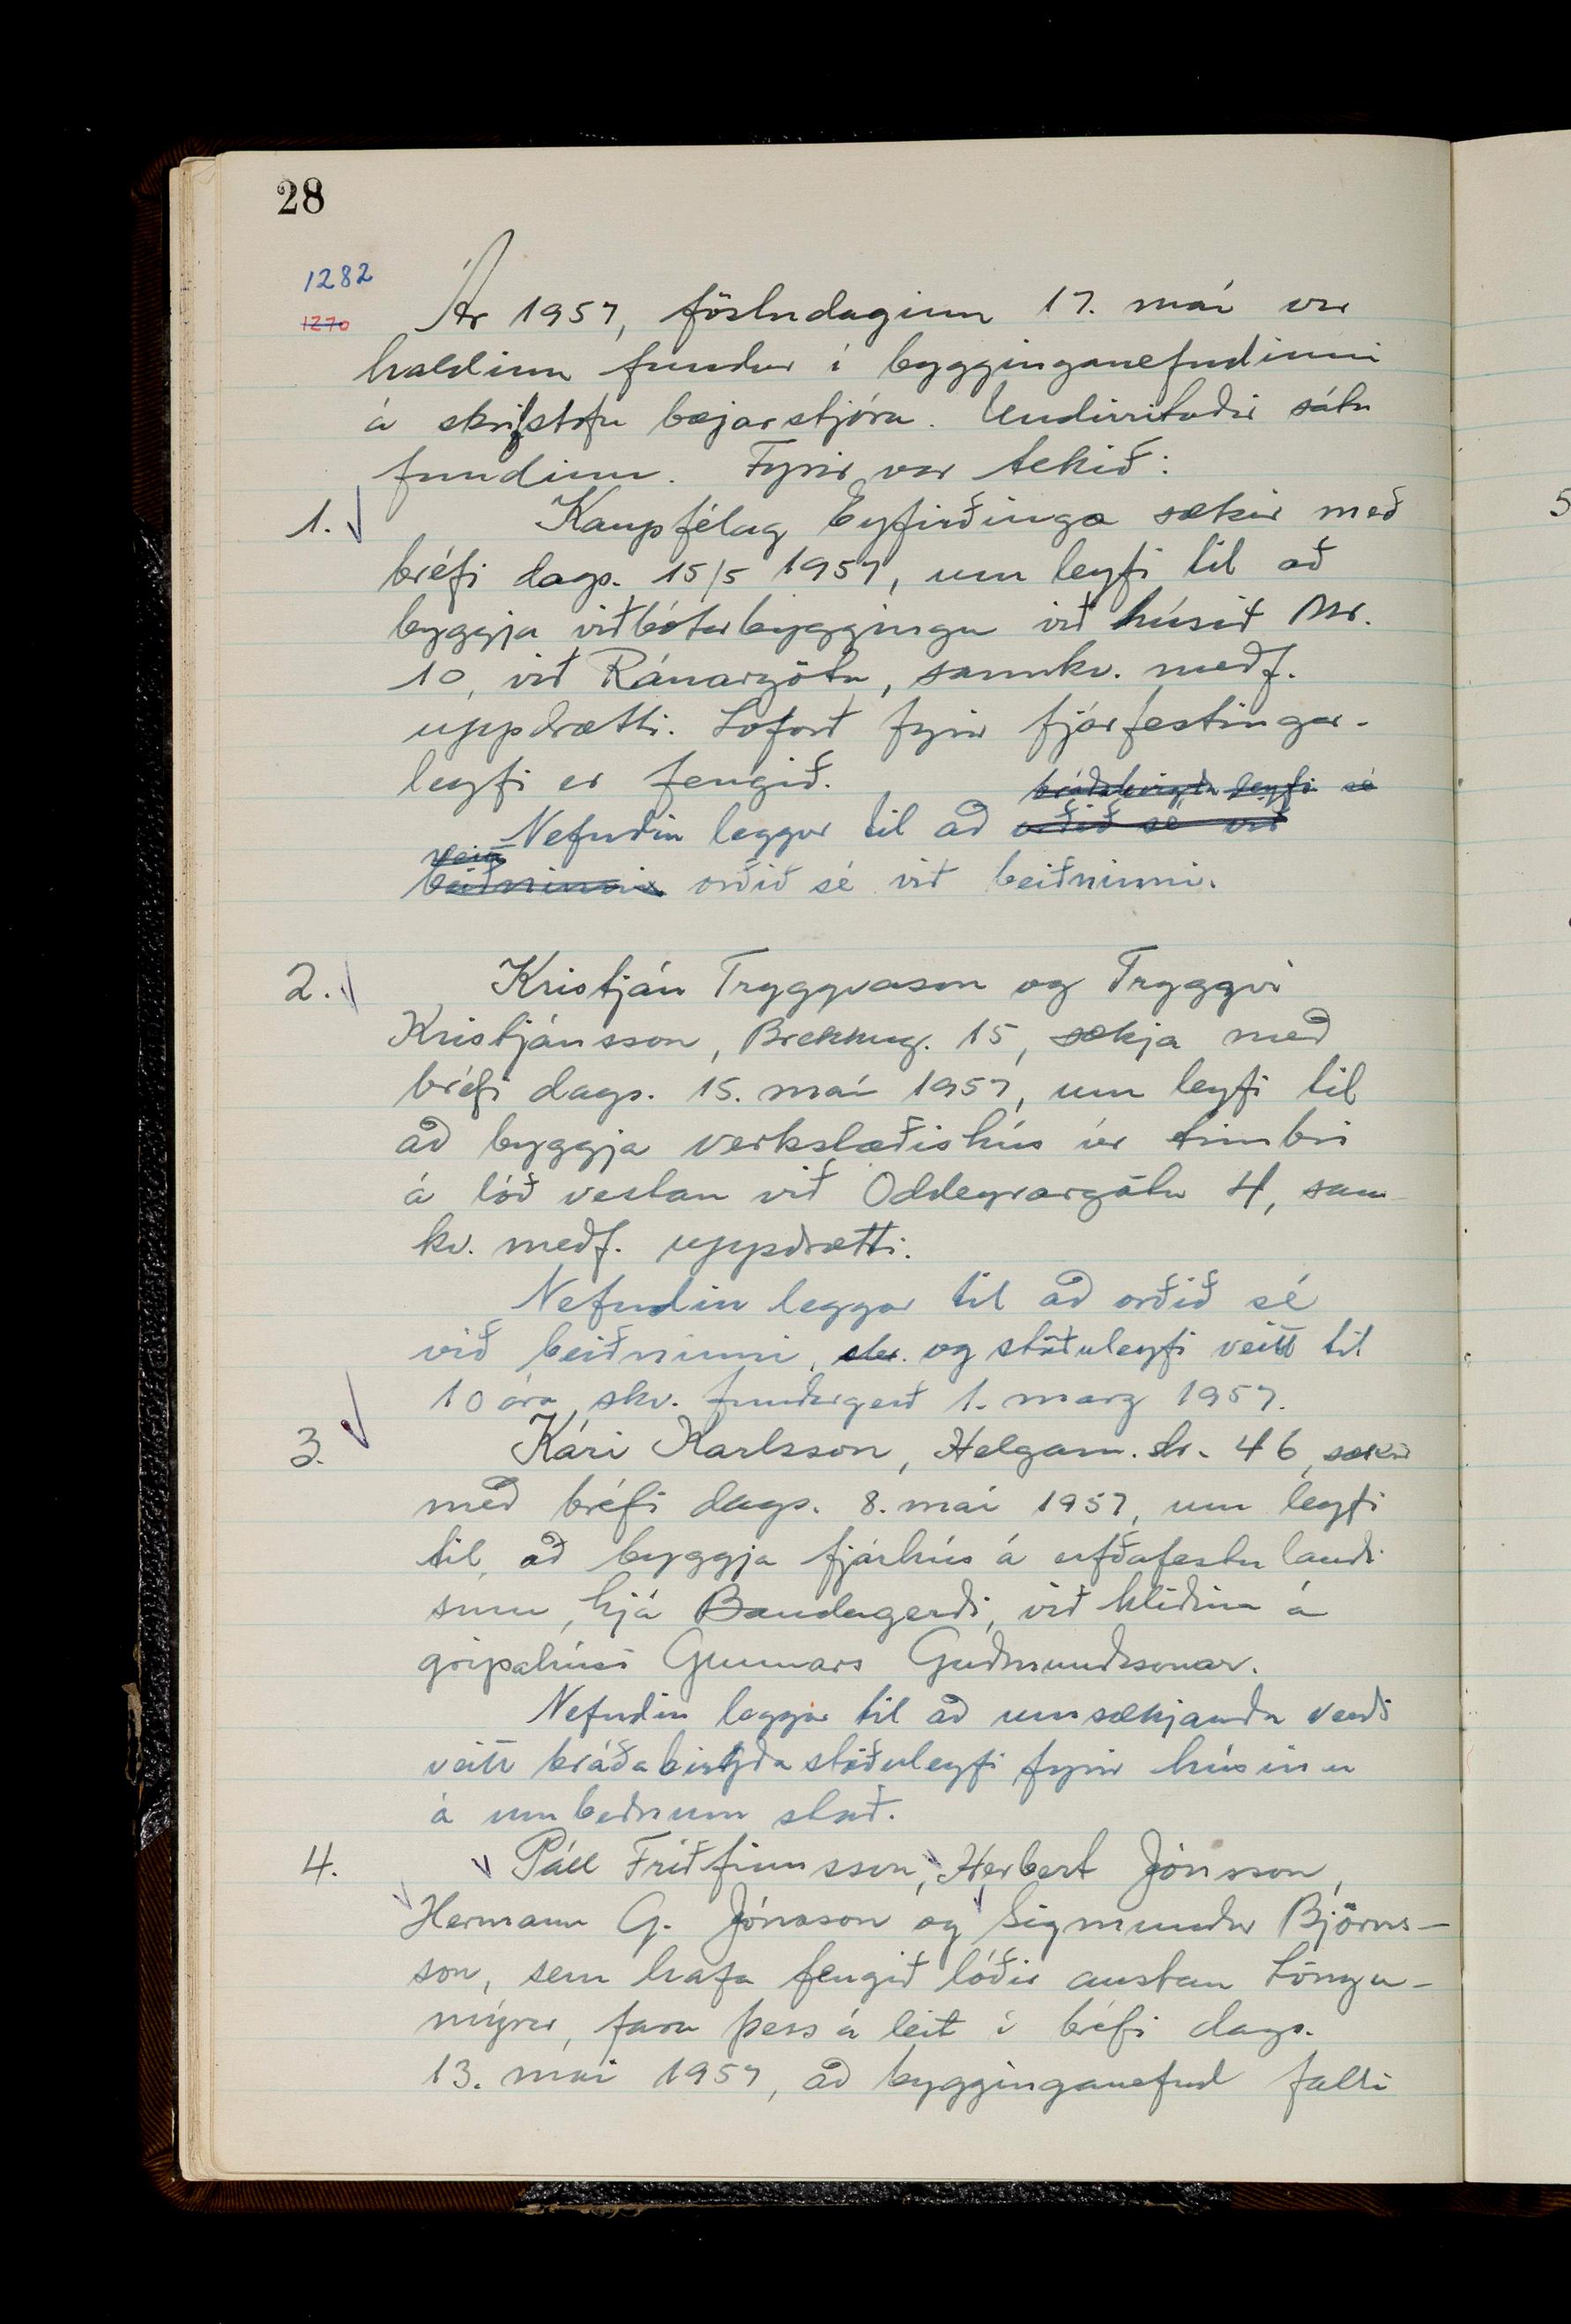 28
1282
1270
Ár 1957, föstudaginn 17. maí var
haldinn fundur í bygginganefndinni
á skrifstofu bæjarstjóra. Undirritaðir sátu
fundinn. Fyrir var tekið:
1. Kaupfélag Eyfirðinga sækir með
bréfi dags. 15/5 1957, um leyfi til að
byggja viðbótarbyggingu við húsið Nr.
10, við Ránargötu, samkv. meðf.
uppdrætti. Loforð fyrir fjárfestingar-
leyfi er fengið.
bráðabirgða leyfi sé
Nefndin leggur til að orðið sé við
veitt
beiðninni orðið sé við beiðninni.
2. Kristján Tryggvason og Tryggvi
Kristjánsson, Brekkug. 15, sækja með
bréfi dags. 15. maí 1957, um leyfi til
að byggja verkstæðishús úr timbri
á lóð vestan við Oddeyrargötu 4, sam-
kv. meðf. uppdrætti.
Nefndin leggur til að orðið sé
við beiðninni, og stöðuleyfi veitt til
10 ára skv. fundargerð 1. marz 1957.
3. Kári Karlsson, Helgam.str. 46, sækir
með bréfi dags. 8. maí 1957, um leyfi
til að byggja fjárhús á erfðafestulandi
sínu, hjá Bandagerði, við hliðina á
gripahúsi Gunnars Guðmundssonar.
Nefndin leggur til að umsækjanda verði
veitt bráðabirgða stöðuleyfi fyrir húsinu
á umbeðnum stað.
4. Páll Friðfinnsson, Herbert Jónsson,
Hermann G. Jónasson og Sigmundur Björns-
son, sem hafa fengið lóðir austan Löngu-
mýrar, fara þess á leit í bréfi dags.
13. maí 1957, að bygginganefnd falli
5